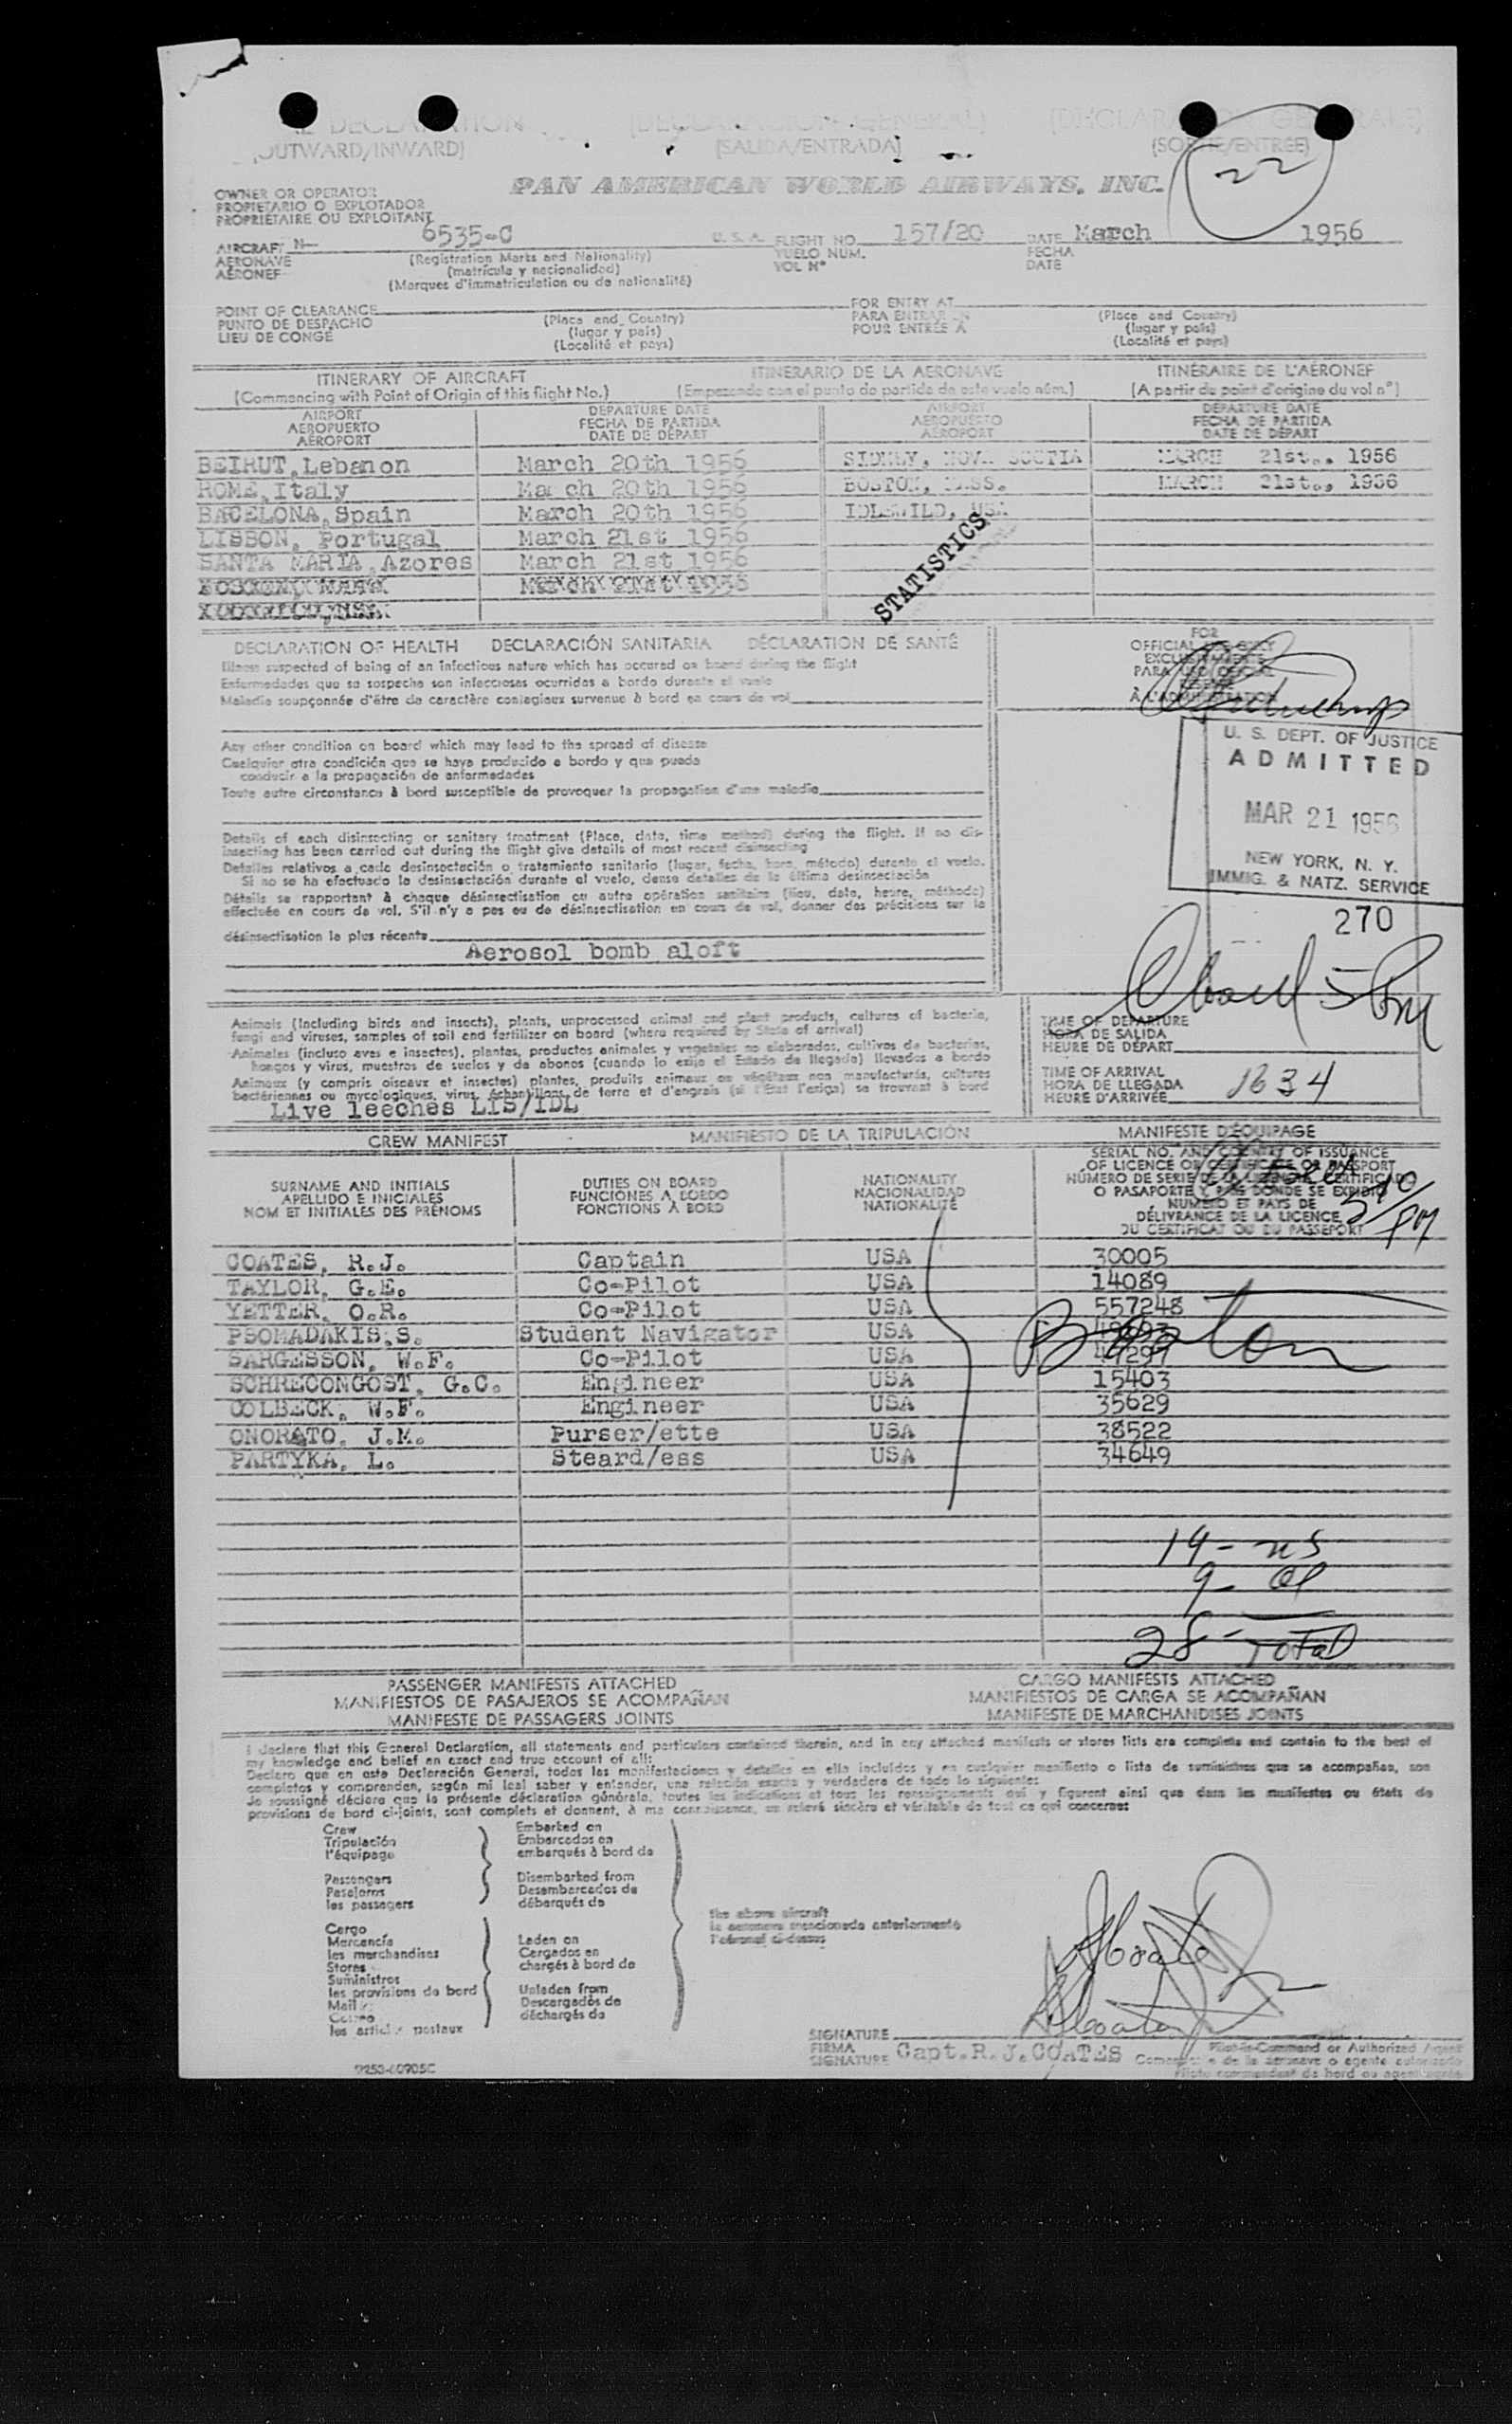 (OUTWARD/INWARD) (SALIDA/ENTRADA) (SORTIE/ENTRÉE)
22
OWNER OR OPERATOR
PROPIETARIO O EXPLOTADOR
PROPRIÉTAIRE OU EXPLOITANT
PAN AMERICAN WORLD AIRWAYS, INC.
AIRCRAFT N- 6535-C U. S. A. FLIGHT NO. 157/20 DATE March 1956
AERONAVE (Registration Marks and Nationality) VUELO NUM. FECHA
AÉRONEF (matrícula y nacionalidad) VOL Nº DATE
(Marques d'immatriculation ou de nationalité)
POINT OF CLEARANCE FOR ENTRY AT
PUNTO DE DESPACHO (Place and Country) PARA ENTRAR EN (Place and Country)
LIEU DE CONGÉ (lugar y país) POUR ENTRÉE À (lugar y país)
(Localité et pays) (Localité et pays)
ITINERARY OF AIRCRAFT ITINERARIO DE LA AERONAVE ITINÉRAIRE DE L'AÉRONEF
(Commencing with Point of Origin of this flight No.) (Empezando con el punto de partida de este vuelo núm.) (A partir du point d'origine du vol nº)
AIRPORT DEPARTURE DATE AIRPORT DEPARTURE DATE
AEROPUERTO FECHA DE PARTIDA AEROPUERTO FECHA DE PARTIDA
AÉROPORT DATE DE DÉPART AÉROPORT DATE DE DÉPART
BEIRUT, Lebanon March 20th 1956 SIDNEY, NOVA SCOTIA MARCH 21st., 1956
ROME, Italy Ma ch 20th 1956 BOSTON, MASS. MARCH 21st., 1956
BACELONA, Spain March 20th 1956 IDLEWILD, USA
LISBON, Portugal March 21st 1956
SANTA MARIA, Azores March 21st 1956
STATISTICS
DECLARATION OF HEALTH DECLARACIÓN SANITARIA DÉCLARATION DE SANTÉ
Illness suspected of being of an infectious nature which has occured on board during the flight
Enfermedades que se sospecha son infecciosas ocurridas a bordo durante el vuelo
Maladie soupçonnée d'être de caractère contagieux survenue à bord en cours de vol
FOR
OFFICIAL USE ONLY
EXCLUSIVAMENTE
PARA USO OFICIAL
RÉSERVÉ
À L'ADMINISTRATION
Any other condition on board which may lead to the spread of disease
Cualquier otra condición que se haya producido a bordo y que pueda
conducir a la propagación de enfermedades
Toute autre circonstance à bord susceptible de provoquer la propagation d'une maladie
U. S. DEPT. OF JUSTICE
ADMITTED
MAR 21 1956
NEW YORK, N. Y.
IMMIG. & NATZ. SERVICE
270
Details of each disinsecting or sanitary treatment (Place, date, time method) during the flight. If no dis-
insecting has been carried out during the flight give details of most recent disinsecting
Detalles relativos a cada desinsectación o tratamiento sanitario (lugar, fecha, hora, método) durante el vuelo.
Si no se ha efectuado la desinsectación durante el vuelo, dense detalles de la última desinsectación
Détails se rapportant à chaque désinsectisation ou autre opération sanitaire (lieu, date, heure, méthode)
effectuée en cours de vol. S'il n'y a pas eu de désinsectisation en cours de vol, donner des précisions sur la
désinsectisation la plus récente
Aerosol bomb aloft
Animals (including birds and insects), plants, unprocessed animal and plant products, cultures of bacteria,
fungi and viruses, samples of soil and fertilizer on board (where required by State of arrival)
Animales (incluso aves e insectos), plantas, productos animales y vegetales no elaborados, cultivos de bacterias,
hongos y virus, muestras de suelos y de abonos (cuando lo exija el Estado de llegada) llevados a bordo
Animaux (y compris oiseaux et insectes) plantes, produits animaux ou végétaux non manufacturés, cultures
bactériennes ou mycologiques, virus, échantillons de terre et d'engrais (si l'État l'exige) se trouvant à bord
Live leeches LIS/IDL
TIME OF DEPARTURE
HORA DE SALIDA
HEURE DE DÉPART
TIME OF ARRIVAL
HORA DE LLEGADA
HEURE D'ARRIVÉE 1634
CREW MANIFEST MANIFIESTO DE LA TRIPULACIÓN MANIFESTE D'ÉQUIPAGE
SURNAME AND INITIALS
APELLIDO E INICIALES
NOM ET INITIALES DES PRÉNOMS
DUTIES ON BOARD
FUNCIONES A BORDO
FONCTIONS À BORD
NATIONALITY
NACIONALIDAD
NATIONALITÉ
SERIAL NO. AND COUNTRY OF ISSUANCE
OF LICENCE OR CERTIFICATE OR PASSPORT
NÚMERO DE SERIE DE LA LICENCIA, CERTIFICADO
O PASAPORTE Y PAÍS DONDE SE EXPIDIÓ
NUMÉRO ET PAYS DE
DÉLIVRANCE DE LA LICENCE
DU CERTIFICAT OU DU PASSEPORT
COATES, R.J. Captain USA 30005
TAYLOR, G.E. Co-Pilot USA 14089
YETTER, O.R. Co-Pilot USA 557248
PSOMADAKIS, S. Student Navigator USA
SARGESSON, W.F. Co-Pilot USA 47297
SCHRECONGOST, G.C. Engineer USA 15403
COLBECK, W.F. Engineer USA 35629
ONORATO, J.M. Purser/ette USA 38522
PARTYKA, L. Steard/ess USA 34649
Boston
19 - US
9 - al
28 - Total
PASSENGER MANIFESTS ATTACHED CARGO MANIFESTS ATTACHED
MANIFIESTOS DE PASAJEROS SE ACOMPAÑAN MANIFIESTOS DE CARGA SE ACOMPAÑAN
MANIFESTE DE PASSAGERS JOINTS MANIFESTE DE MARCHANDISES JOINTS
I declare that this General Declaration, all statements and particulars contained therein, and in any attached manifests or stores lists are complete and contain to the best of
my knowledge and belief an exact and true account of all:
Declaro que en esta Declaración General, todas las manifestaciones y detalles en ella incluidos y en cualquier manifiesto o lista de suministros que se acompañan, son
completos y comprenden, según mi leal saber y entender, una relación exacta y verdadera de todo lo siguiente:
Je soussigné déclare que la présente déclaration générale, toutes les indications et tous les renseignements qui y figurent ainsi que dans les manifestes ou états de
provisions de bord ci-joints, sont complets et donnent, à ma connaissance, un relevé sincère et véritable de tout ce qui concerne:
Crew Embarked on
Tripulación Embarcados en
l'équipage embarqués à bord de
Passengers Disembarked from
Pasajeros Desembarcados de
les passagers débarqués de
the above aircraft
la aeronave mencionada anteriormente
l'aéronef ci-dessus
Cargo Laden on
Mercancía Cargados en
les marchandises chargés à bord de
Stores
Suministros
les provisions de bord Unladen from
Mail Descargados de
Correo déchargés de
les articles postaux
SIGNATURE
FIRMA
SIGNATURE Capt.R.J.COATES
Pilot-in-Command or Authorized Agent
Comandante de la aeronave o agente autorizado
Pilote commandant de bord ou agent
9253-60905C